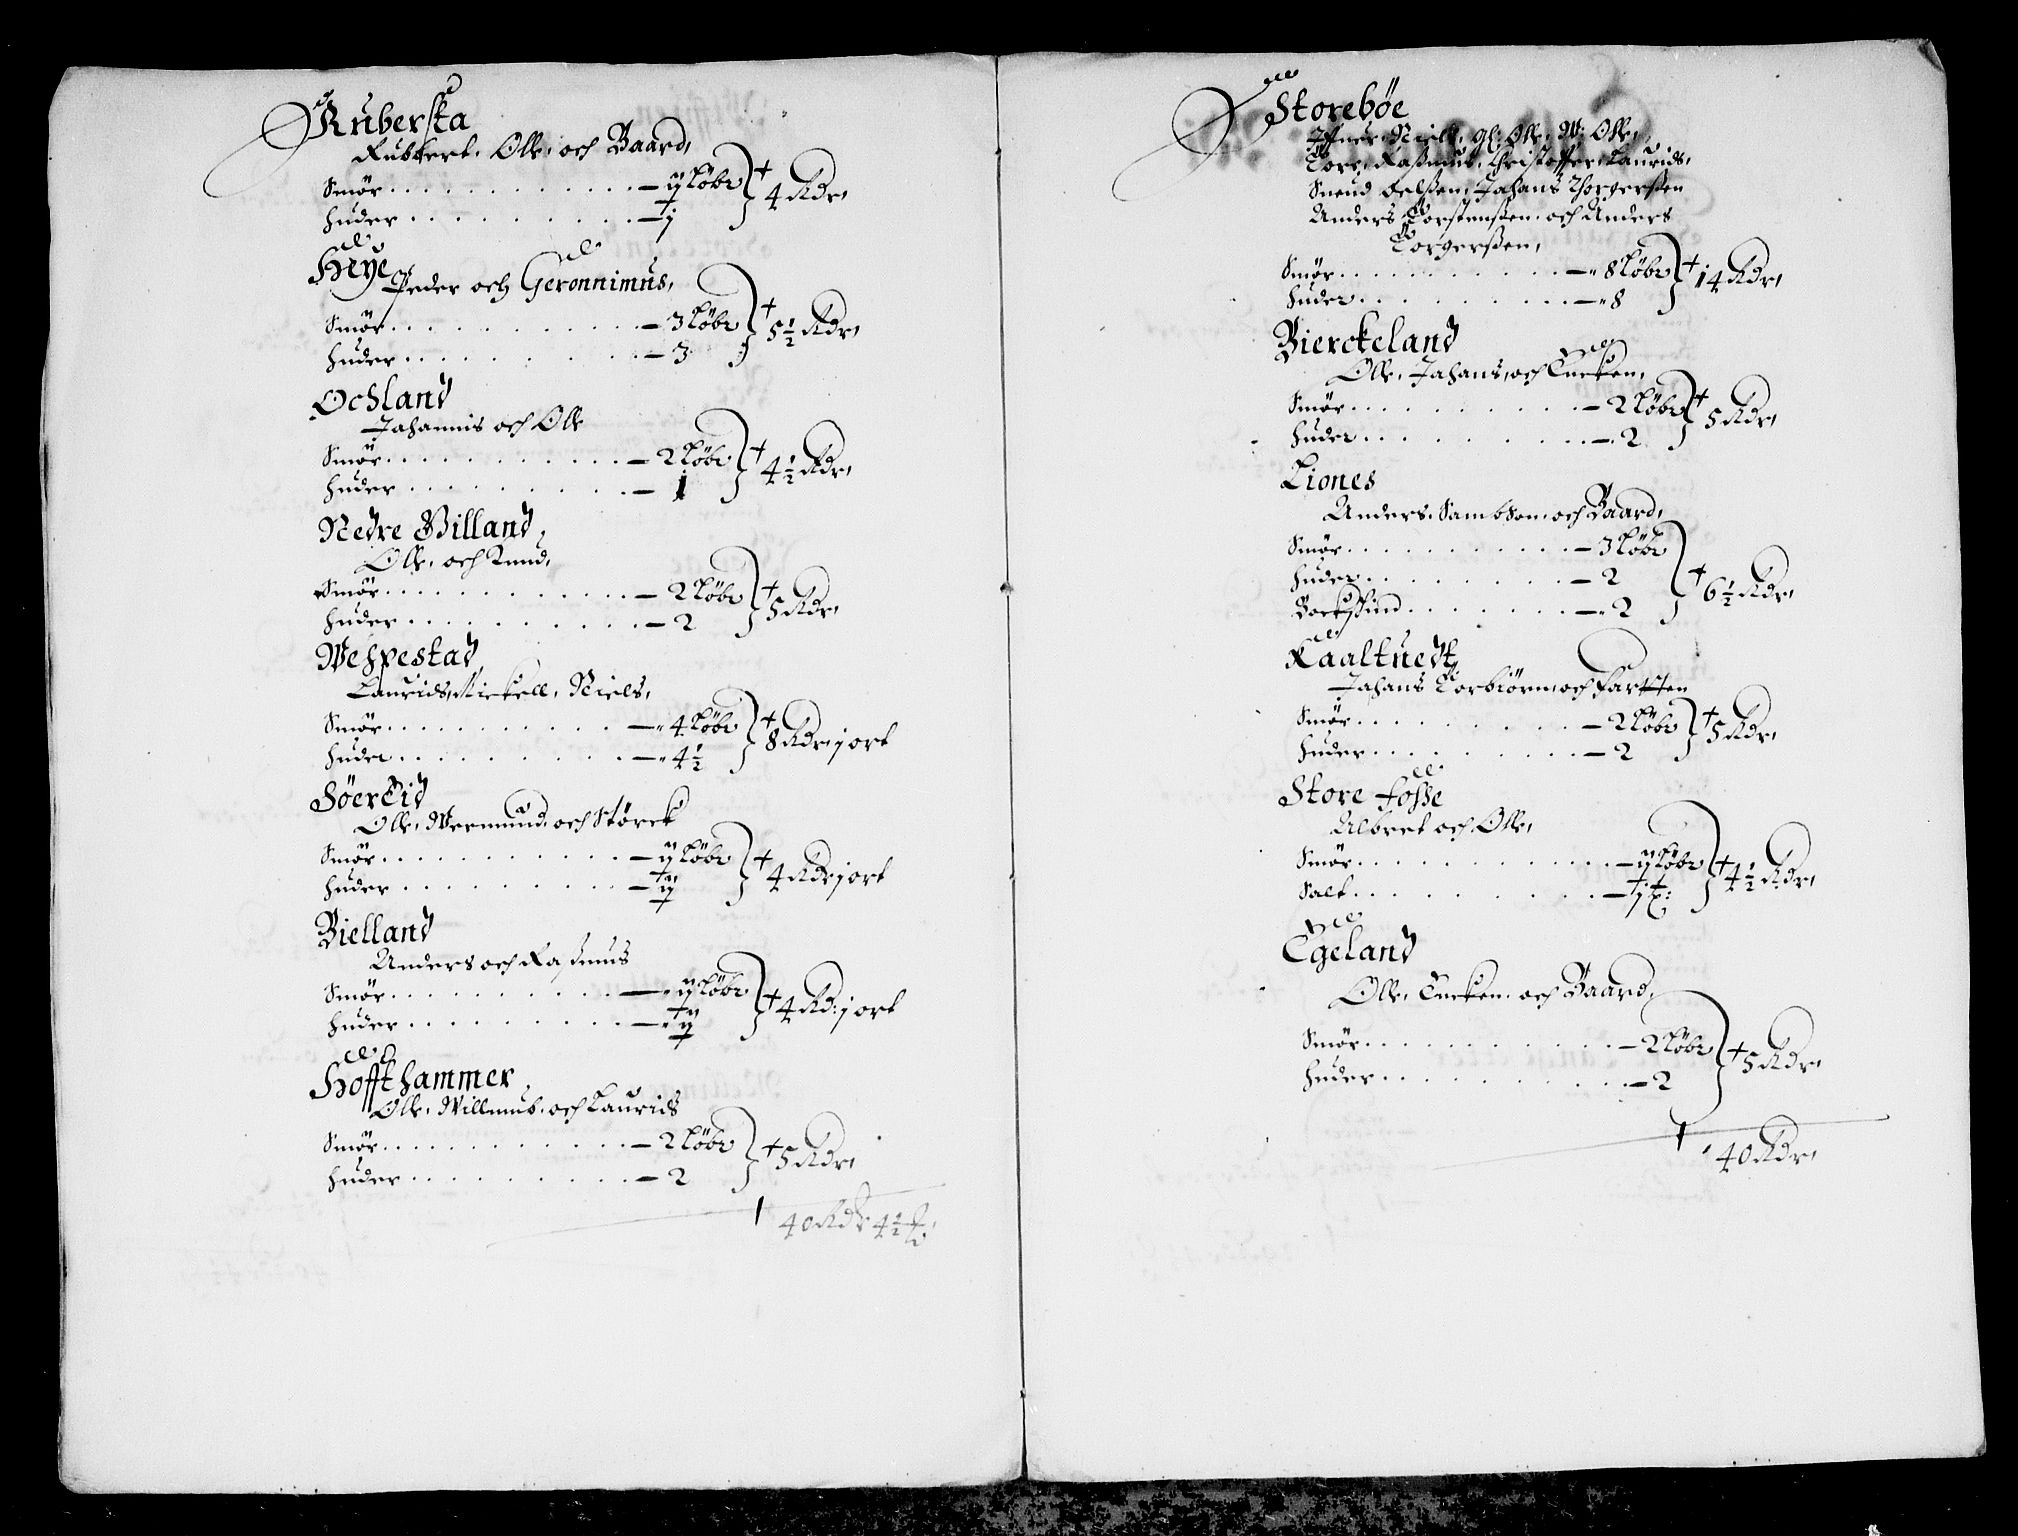 Ruberska
Rubbert, Olle, och Baard,
Smör . . . . . . . . . . . — ÿ Löbr } + 4 Rdr,
Huder . . . . . . . . . — j
Heye
Peder och Geronnimus,
Smör . . . . . . . . . . — 3 Löbr } + 5 1/2 Rdr,
Huder . . . . . . . . — 3
Ochland
Johannis och Olle
Smör . . . . . . . . . . — 2 Löbr } + 4 1/2 Rdr,
Huder . . . . . . . . — 1
Nedre Billand,
Olle, och Knud,
Smör . . . . . . . . . . — 2 Löbr } + 5 Rdr,
Huder . . . . . . . . . — 2
Wespestad
Laurids, Mickell, Niels,
Smör . . . . . . . . . . — 4 Löbr } + 8 Rdr j ort
Huder . . . . . . . . . — 4 1/2
Söer Eid
Olle, Wermund, och Störck
Smör . . . . . . . . . . — ÿ Löbr } + 4 Rdr j ort
Huder . . . . . . . . . — ÿ
Bielland
Anders och Rasmus
Smör . . . . . . . . . . — ÿ Löbr } + 4 Rd: j ort
Huder . . . . . . . . . — ÿ
Hoffthammer,
Olle, Willumb, och Laurids
Smör . . . . . . . . . . — 2 Löbr } + 5 Rdr,
Huder . . . . . . . . . — 2
40 Rdr 4 1/2
Storeböe
Niels, gl: Olle, W: Olle,
Tore, Rasmus, Christoffer, Laurids,
Johans Thorgerssen
Anders Torstenssen, och Anders
Torgerssen,
Smör . . . . . . . . . . — 8 Löbr } + 14 Rdr,
Huder . . . . . . . . . — 8
Bierckeland
Olle, Johans, och
Smör . . . . . . . . . . — 2 Löbr } + 5 Rdr,
Huder . . . . . . . . . — 2
Liones
Anders, Sambson, och Baard,
Smör . . . . . . . . . . — 3 Löbr
Huder . . . . . . . . . — 2 } + 6 1/2 Rdr,
Bockskind . . . . . . . — 2
Kaaltuedt
Johans Torbiörn, och
Smör . . . . . . . . . . — 2 Löbr } + 5 Rdr,
Huder . . . . . . . . . — 2
Store Fosse
Albret och Olle,
Smör . . . . . . . . . . — ÿ Löbr } + 4 1/2 Rdr,
Salt . . . . . . . . . — j t:
Egeland
Olle, och Baard,
Smör . . . . . . . . . . — 2 Löbr } + 5 Rdr,
Huder . . . . . . . . . — 2
40 Rdr,